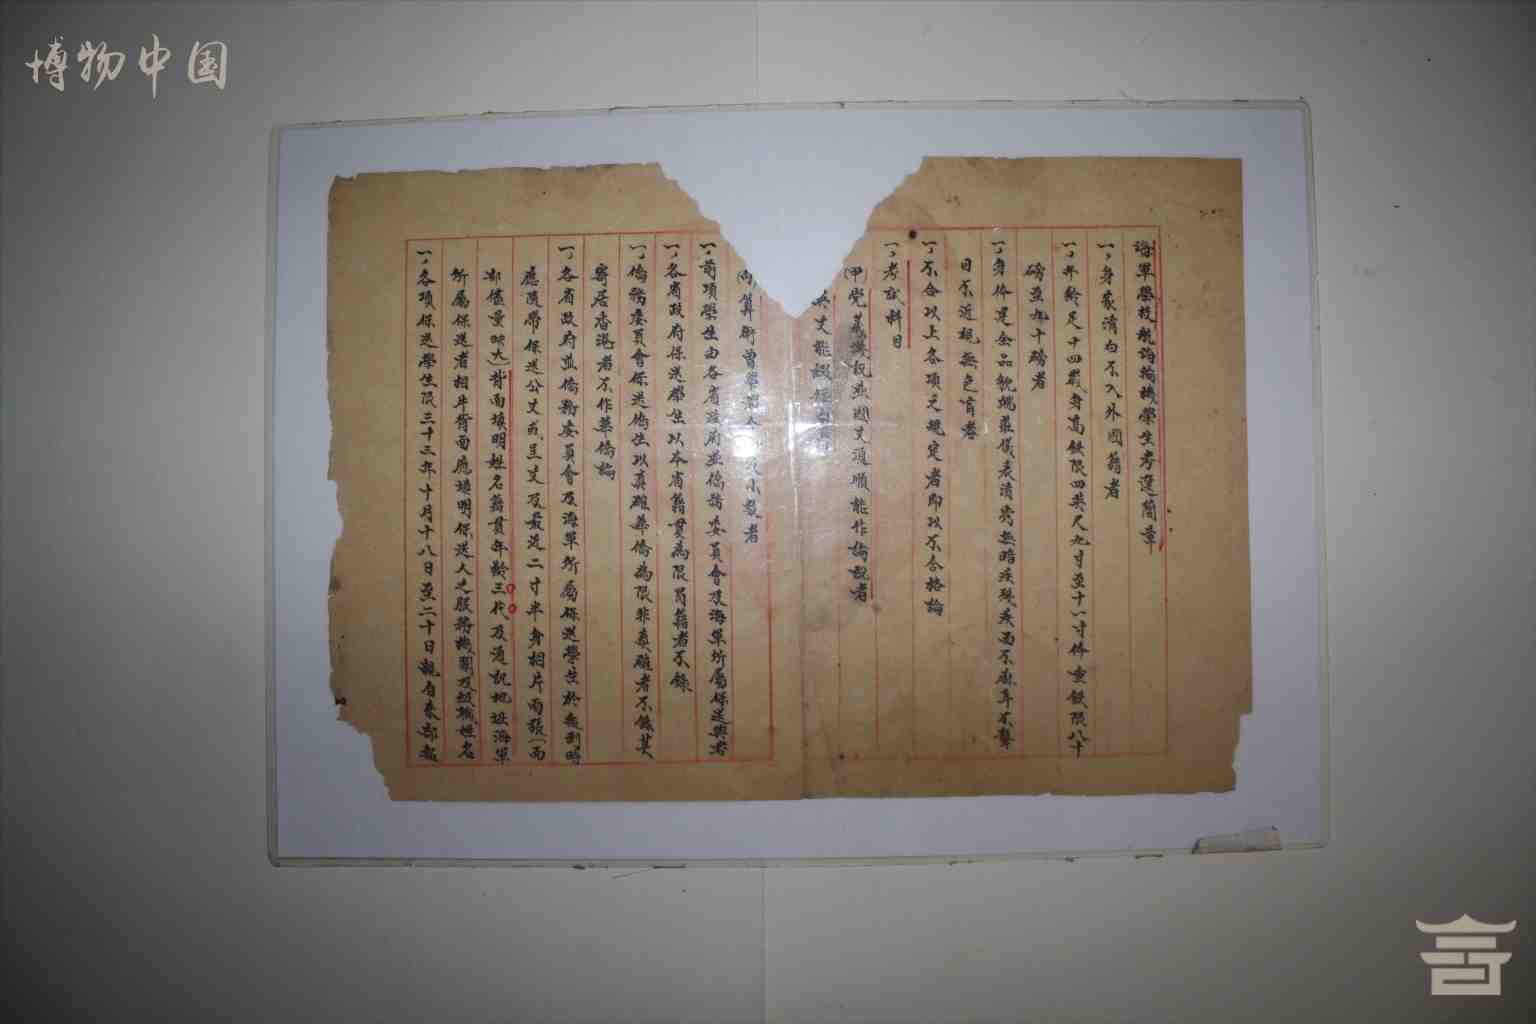 博物中国
海軍學校航海輪機學生考選簡章
一、身家清白不入外國籍者
一、年齡足十四歲身高須限四英尺九寸至十一寸体重須限八十
磅至九十磅者
一、身体足全品貌端莊儀表清秀無暗疾殘疾而不麻耳不聾
目不近視無色盲者
一、不合以上各項之規定者即以不合格論
一、考試科目
(甲)黨義淺說並國文通順能作論說者
英文能
(丙)算術曾學 小數者
一、前項學生由各省政府並僑務委員會及海軍所屬保送與考
一、各省政府保送學生以本省籍貫為限冒籍者不錄
一、僑務委員會保送僑生以真確華僑為限非真確者不錄其
寄居香港者不作華僑論
一、各省政府並僑務委員會及海軍所屬保送學生於報到時
應隨帶保送公文或呈文及最近二寸半身相片兩張(面
部儘量映大)背面填明姓名籍貫年齡三代及通訊地址海軍
所屬保送者相片背面應填明保送人之服務機關及級職姓名
一、各項保送學生限三十三年十月十八日至二十日親自來部報